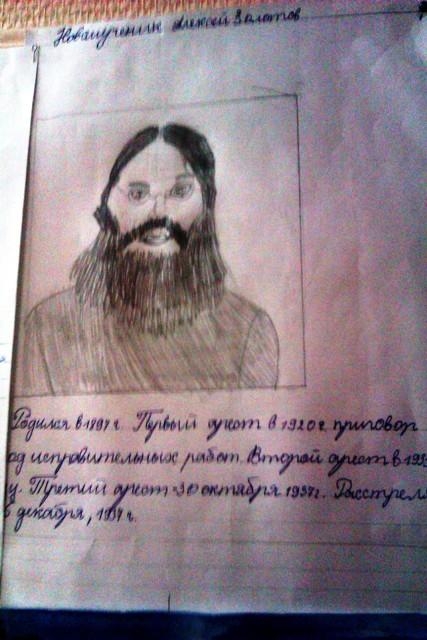 Новомученик Алексей Золотов
Родился в 1897 г. Первый арест в 1920 г. приговор
од исправительных работ. Второй арест в 193
Третий арест 30 октября 1937 г. Расстрел
декабря, 1937 г.